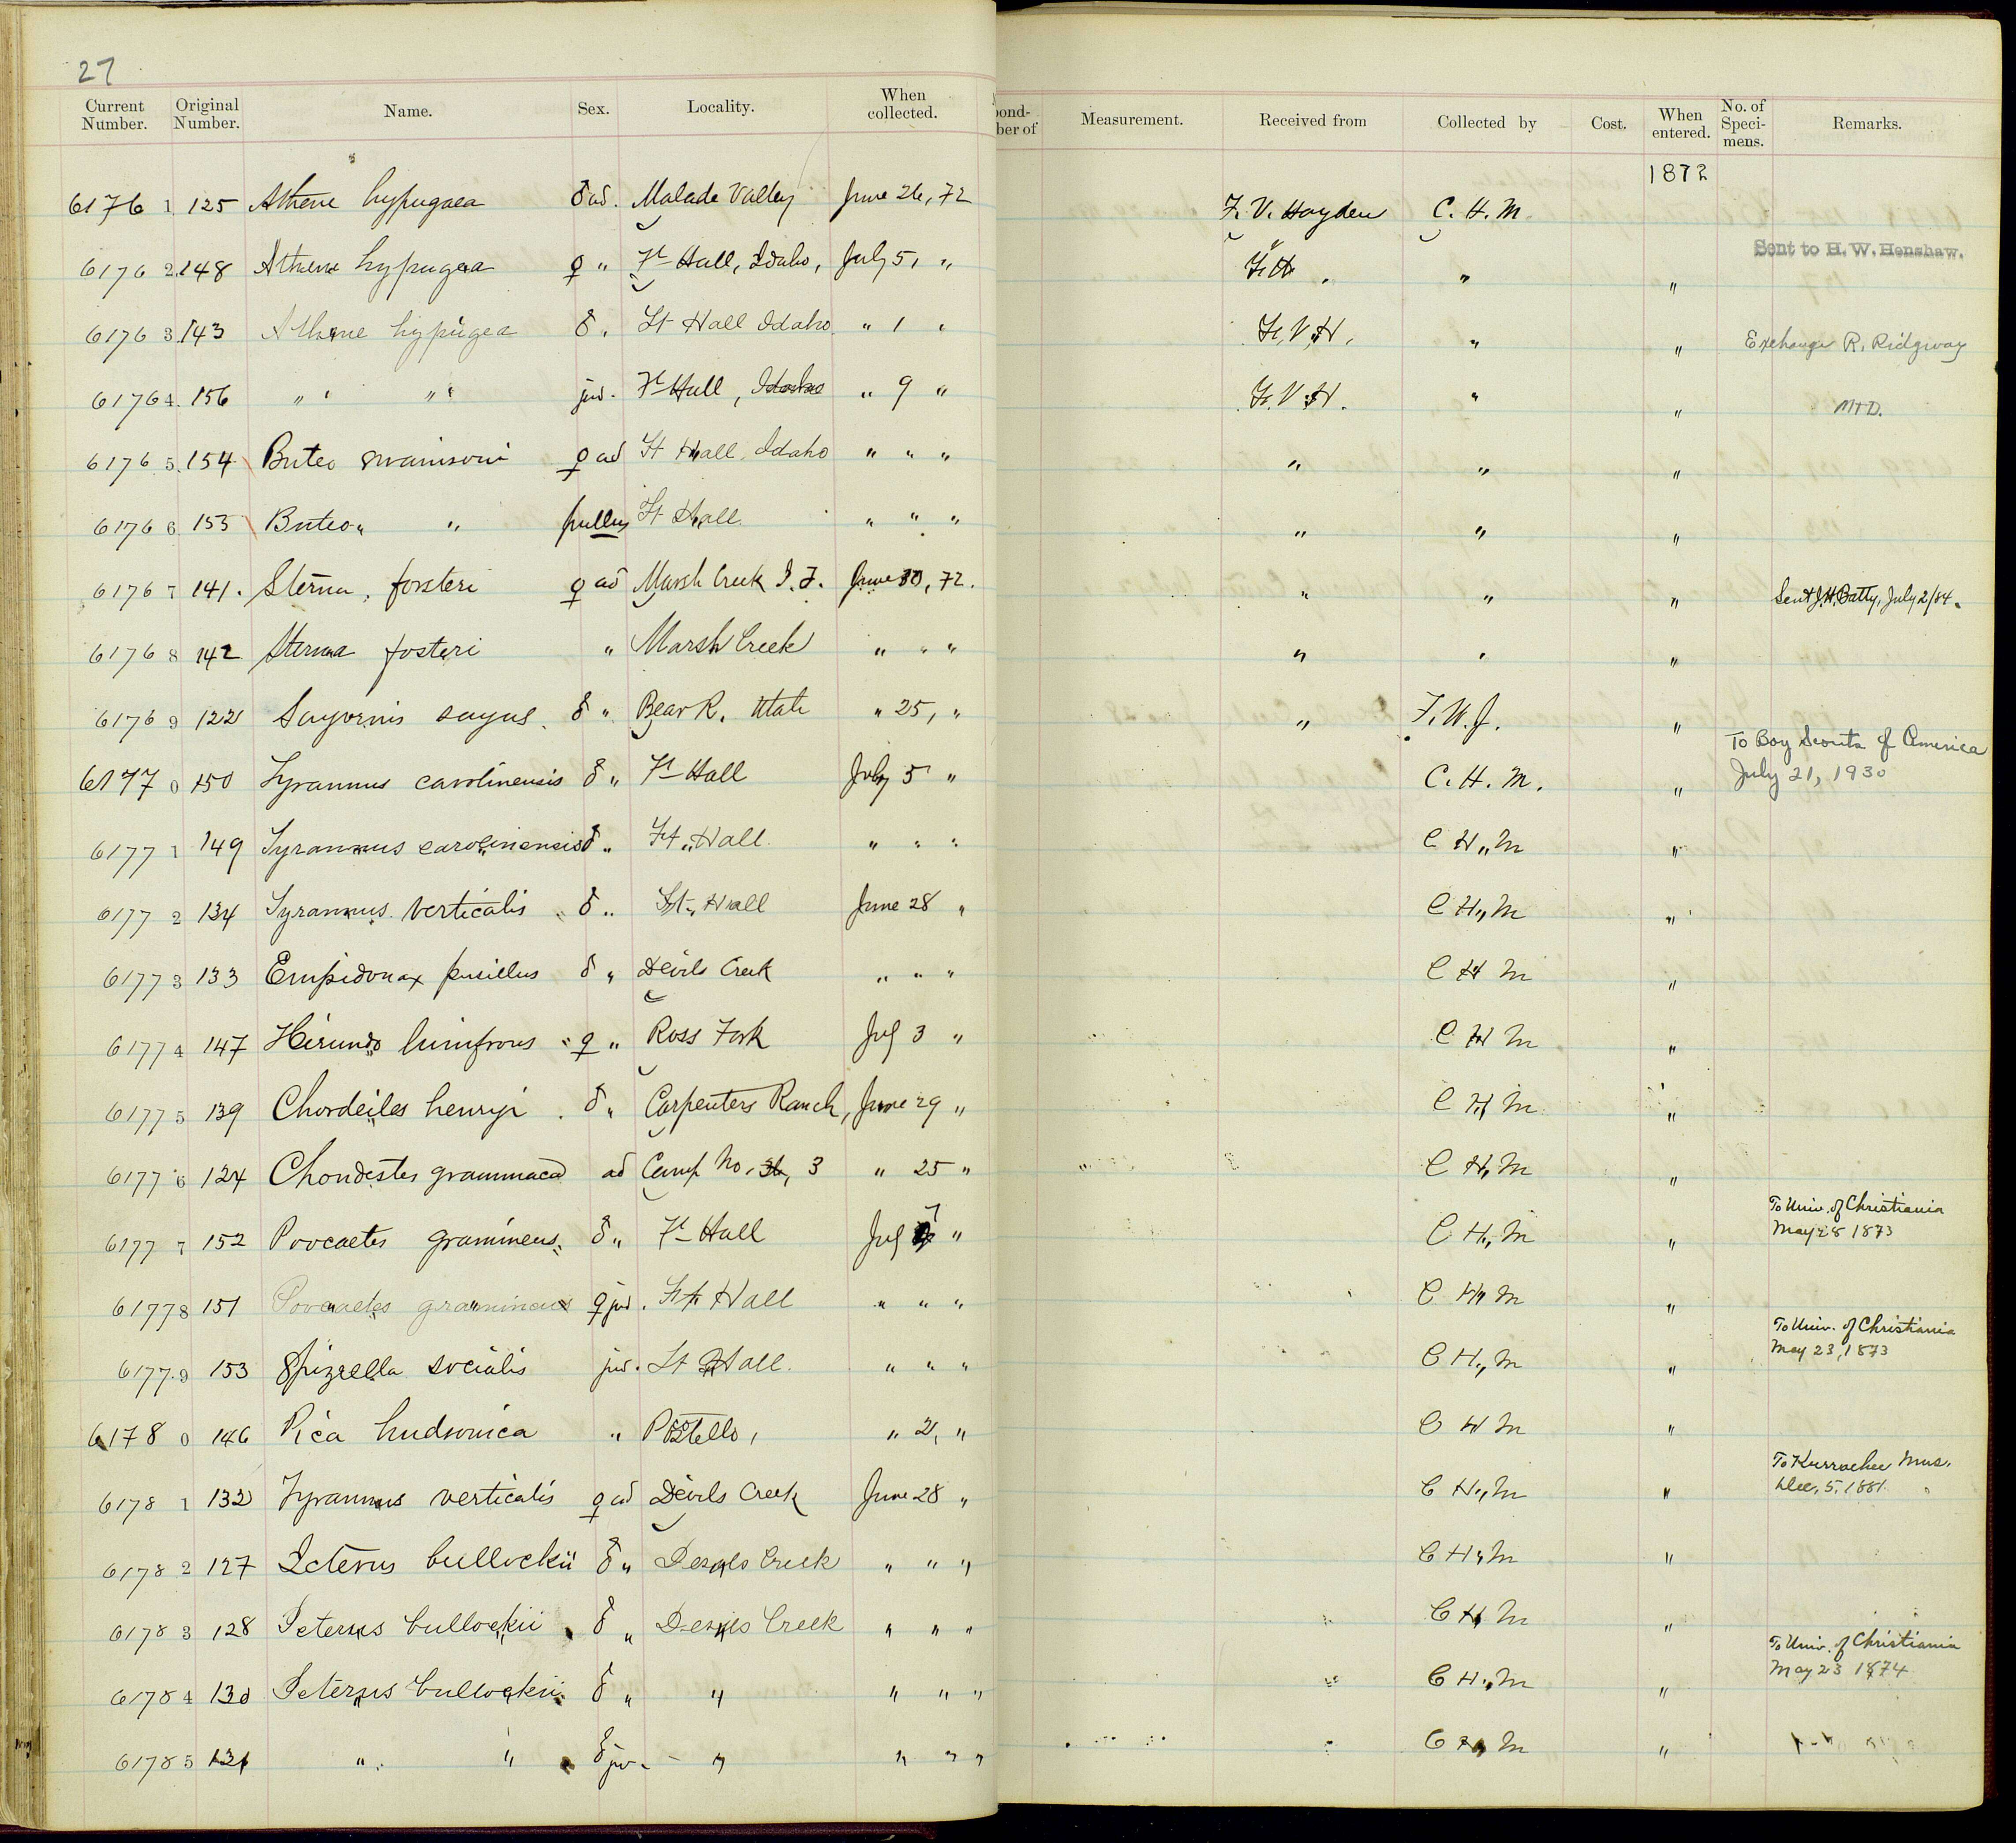 27
Current Number. Original Number. Name. Sex. Locality. When collected. pond- ber of Measurement. Received from Collected by Cost. When entered. No. of Speci- mens. Remarks.
1872
61761 125 Athene hypugaea ♂ ad. Malade Valley June 26, 72 F. V. Hayden C. H. M.
61762 148 Athene hypugaea ♀ " Ft Hall, Idaho, July 5, " " " Sent to H. W. Henshaw.
61763 143 Athene hypugea ♂ " Ft Hall Idaho " 1 " F. V. H. " " Exchange R. Ridgway
61764 156 " " juv. Ft Hall, Idaho " 9 " F. V. H. " "
61765 154 Buteo swainsoni ♀ ad Ft Hall, Idaho " " " " " "
61766 155 Buteo " pullus Ft Hall " " " " " "
61767 141. Sterna forsteri ♀ ad Marsh Creek I. T. June 30, 72. " " " Sent J. H. Batty, July 2/84.
61768 142 Sterna fosteri " Marsh Creek " " " " " "
61769 122 Sayornis sayus ♂ " Bear R. Utah " 25, " " F. W. J. "
61770 150 Tyrannus carolinensis ♂ " Ft Hall July 5 " C. H. M. " To Boy Scouts of America July 21, 1930
61771 149 Tyrannus carolinensis ♂ " Ft. Hall " " " C H M "
61772 134 Tyrannus verticalis ♂ " Ft. Hall June 28 " C H M "
61773 133 Empidonax pusillus ♂ " Devils Creek " " " C H M "
61774 147 Hirundo lunifrons ♀ " Ross Fork July 3 " C H M "
61775 139 Chordeiles henryi ♂ " Carpenters Ranch, June 29 " C H M "
61776 124 Chondestes grammaca ad Camp No. 3 " 25 " C H M "
61777 152 Poocaetes gramineus ♂ " Ft Hall July 7 " C H M " To Univ. of Christiania May 28 1873
61778 151 Poocaetes gramineus ♀ juv. Ft Hall " " " C H M "
61779 153 Spizella socialis juv. Ft Hall " " " C H M " To Univ. of Christiania May 23, 1873
61780 146 Pica hudsonica " " 2, " C H M "
61781 132 Tyrannus verticalis ♀ ad Devils Creek June 28 " C H M " To Kurrachee Mus. Dec. 5, 1881
61782 127 Icterus bullockii ♂ " Devils Creek " " " C H M "
61783 128 Icterus bullockii ♂ " Devils Creek " " " C H M "
61784 130 Icterus bullockii ♂ " " " " " C H M " To Univ. of Christiania May 23 1874
61785 131 " " ♂ juv. " " " " C H M "